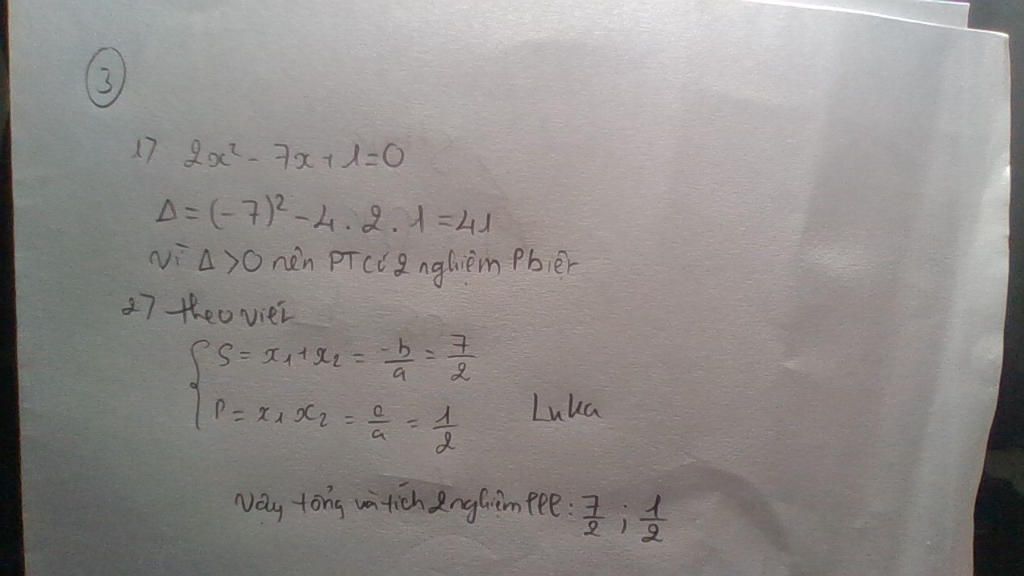 3
1) 2x² - 7x + 1 = 0
Δ = (-7)² - 4 . 2 . 1 = 41
vì Δ > 0 nên PT có 2 nghiệm Pbiệt
2) theo viét
S = x₁ + x₂ = -b/a = 7/2
P = x₁ x₂ = c/a = 1/2
Luka
Vậy tổng và tích 2 nghiệm : 7/2 ; 1/2